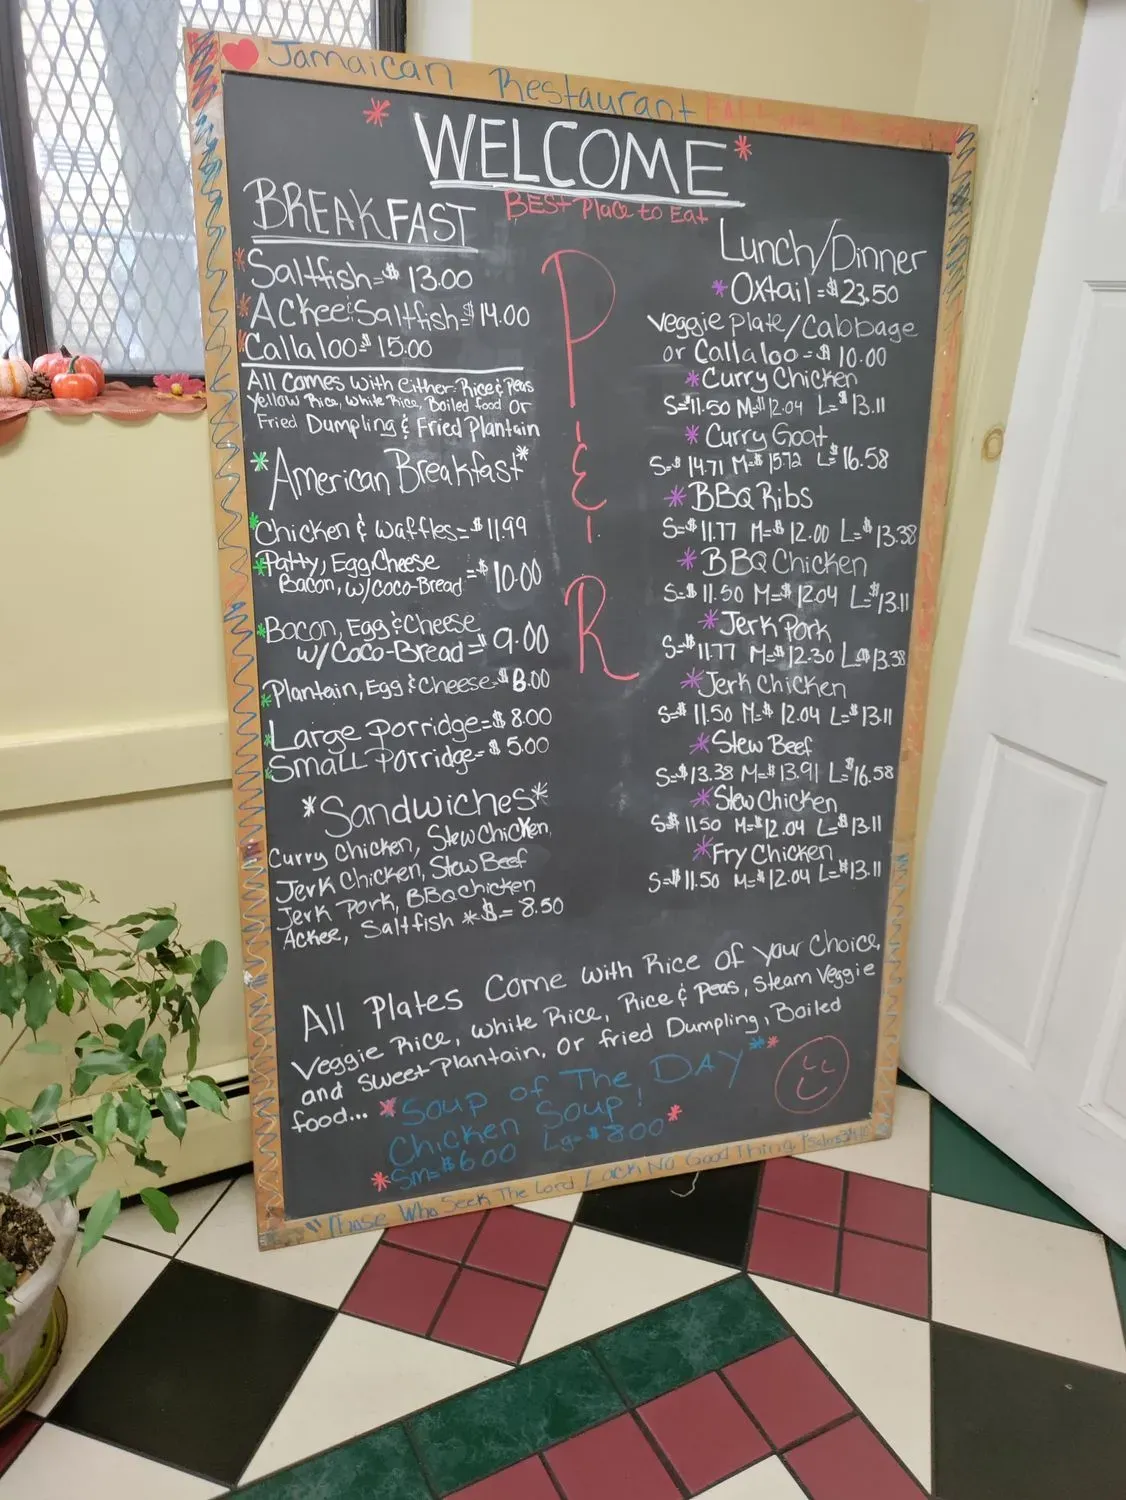 Jamaican Restaurant
* WELCOME *
BEST Place to Eat
P
&
R
BREAKFAST
* Saltfish = $ 13.00
* Ackee & Saltfish = $ 14.00
* Callaloo = $ 15.00
All comes with Either: Rice & Peas
Yellow Rice, White Rice, Boiled food Or
Fried Dumpling & Fried Plantain
* American Breakfast *
* Chicken & Waffles = $ 11.99
* Patty, Egg, Cheese
Bacon, w/coco-Bread = $ 10.00
* Bacon, Egg & Cheese
w/Coco-Bread = $ 9.00
* Plantain, Egg & Cheese = $ 8.00
* Large Porridge = $ 8.00
* Small Porridge = $ 5.00
* Sandwiches *
Curry Chicken, Stew Chicken,
Jerk Chicken, Stew Beef
Jerk Pork, BBQ Chicken
Ackee, Saltfish * $ = 8.50
Lunch/Dinner
* Oxtail = $ 23.50
Veggie Plate/Cabbage
or Callaloo = $ 10.00
* Curry Chicken
S=$11.50 M=$12.04 L=$13.11
* Curry Goat
S=$14.71 M=$15.72 L=$16.58
* BBQ Ribs
S=$11.77 M=$12.00 L=$13.38
* BBQ Chicken
S=$11.50 M=$12.04 L=$13.11
* Jerk Pork
S=$11.77 M=$12.30 L=$13.38
* Jerk Chicken
S=$11.50 M=$12.04 L=$13.11
* Stew Beef
S=$13.38 M=$13.91 L=$16.58
* Stew Chicken
S=$11.50 M=$12.04 L=$13.11
* Fry Chicken
S=$11.50 M=$12.04 L=$13.11
All Plates Come with Rice of your Choice,
Veggie Rice, White Rice, Rice & Peas, Steam Veggie
and Sweet Plantain, Or fried Dumpling, Boiled
food...
* Soup of The DAY **
Chicken Soup!
* Sm=$6.00 Lg=$8.00 *
"Those Who Seek The Lord Lack No Good Thing